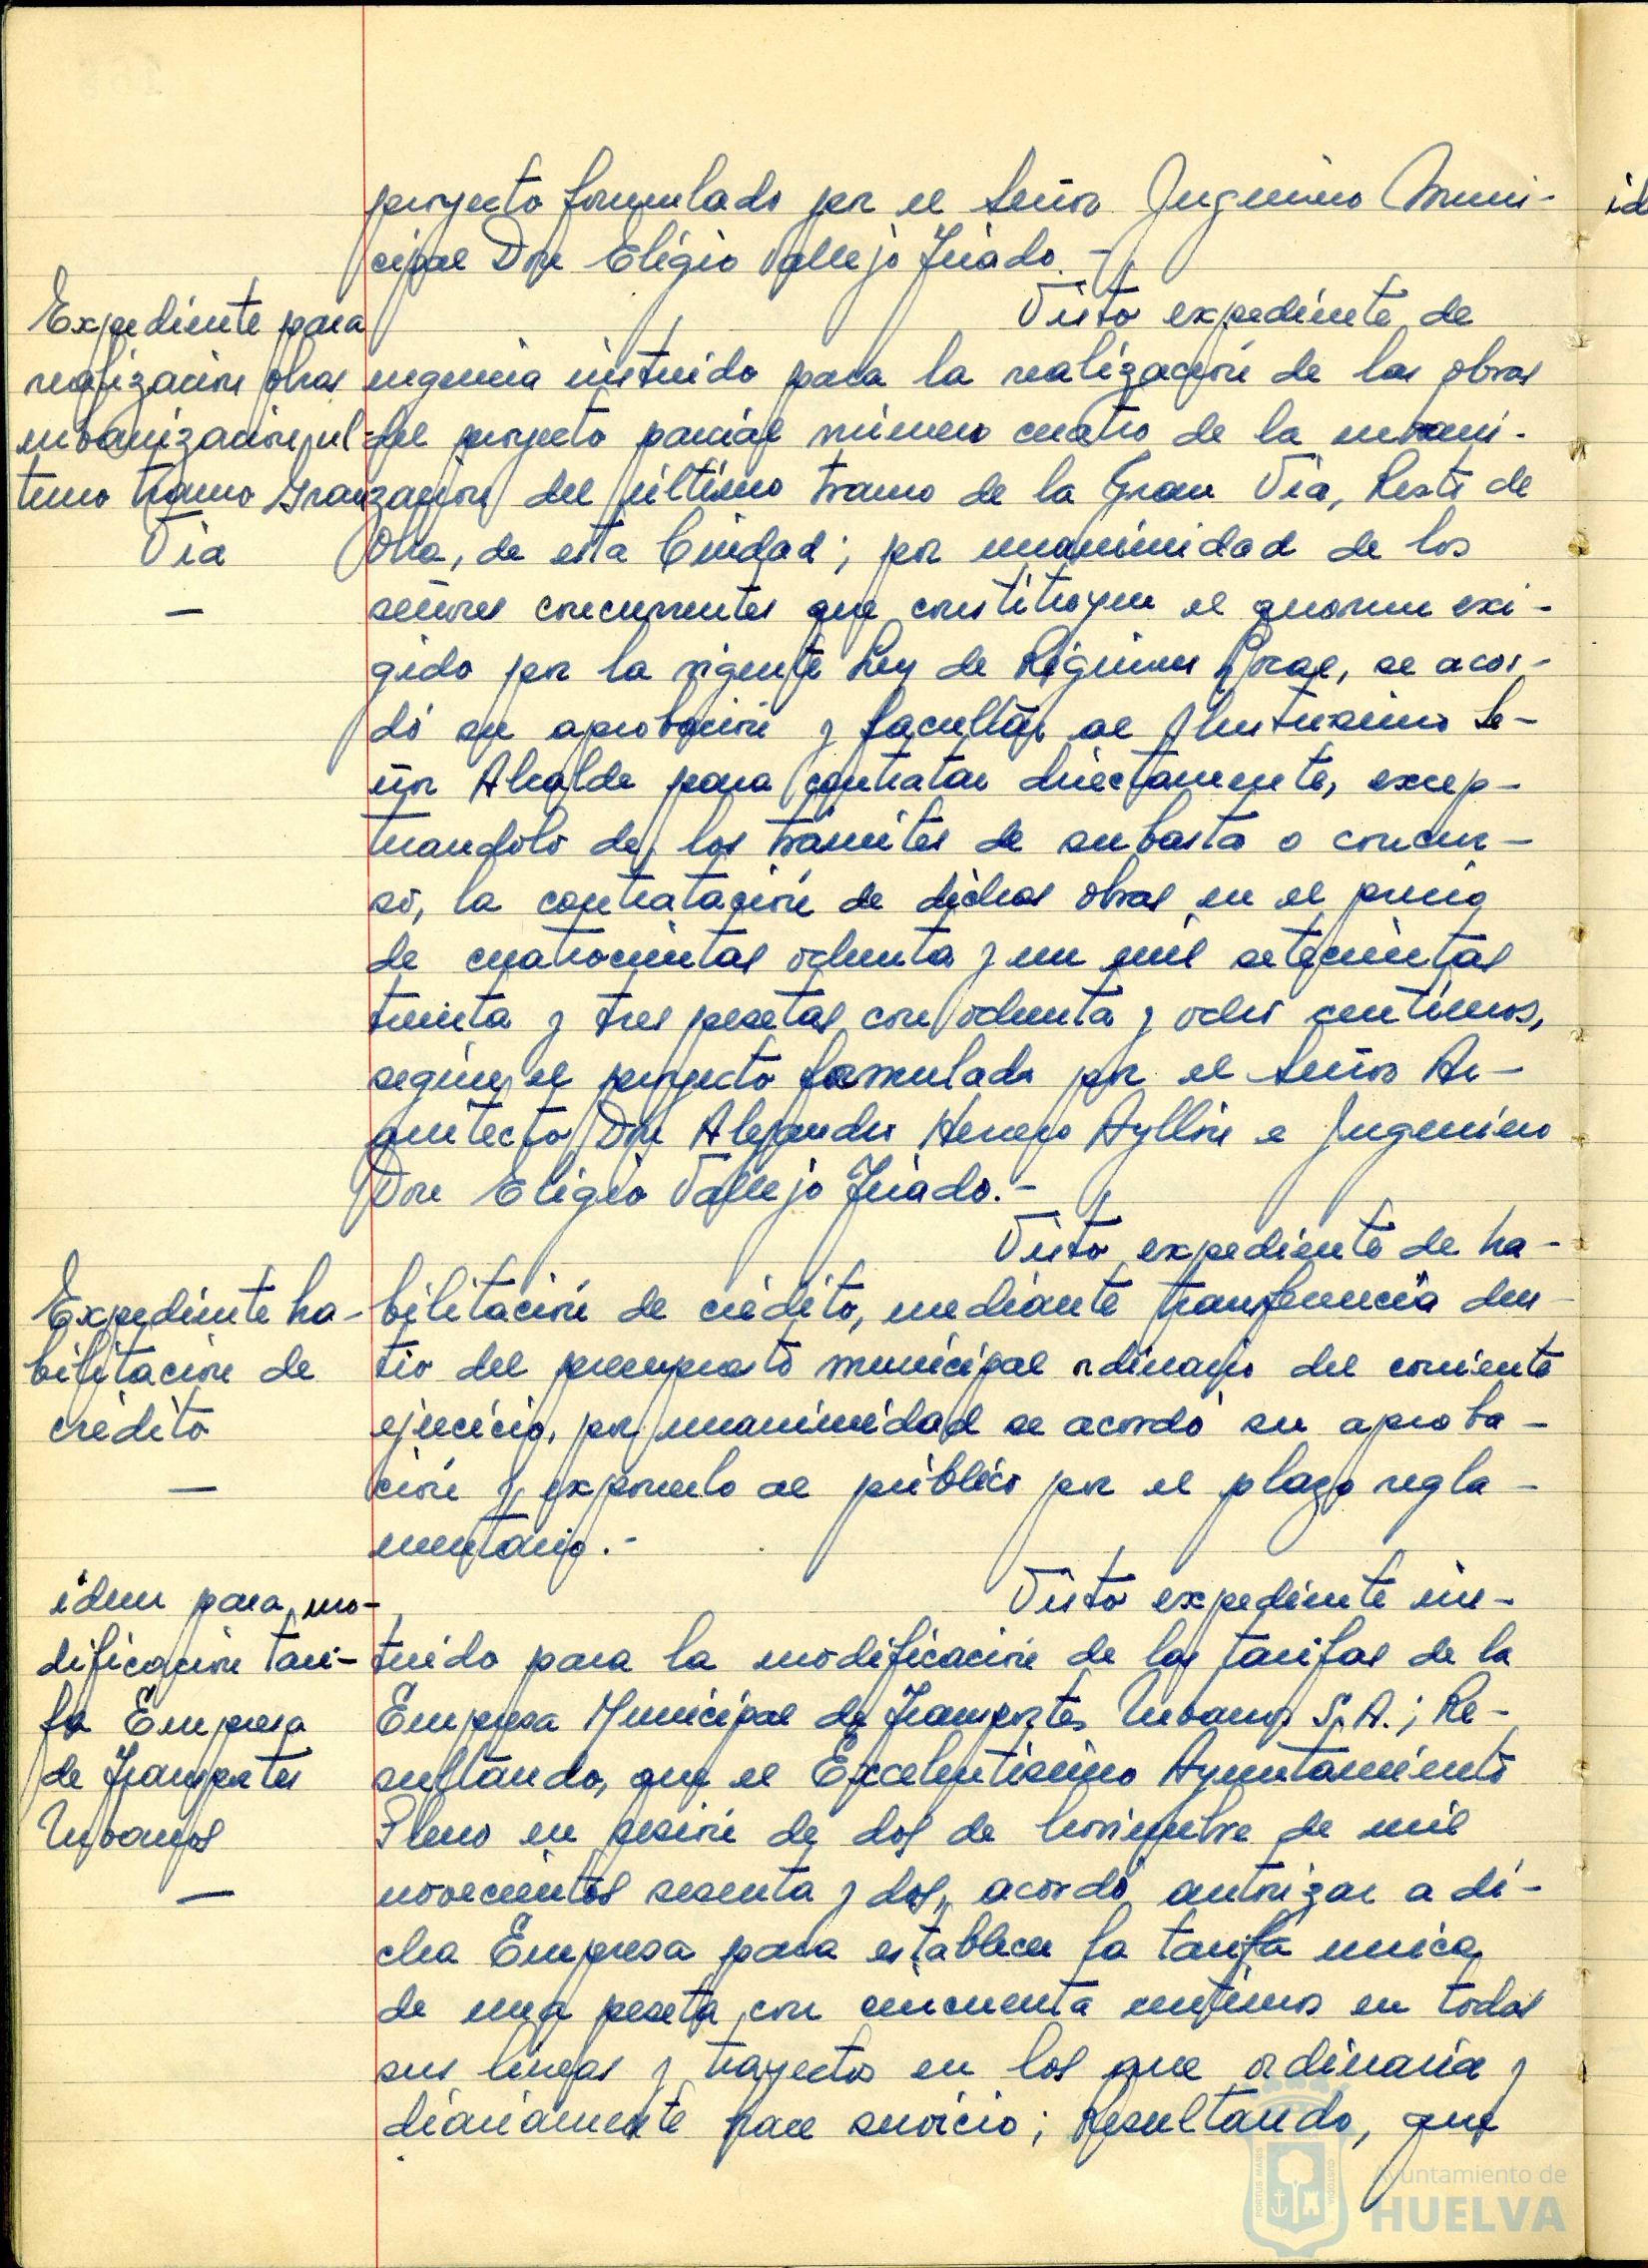 proyecto formulado por el Señor Ingeniero Muni-
cipal Don Eligio Vallejo Jurado.-
Expediente para
realización obras
urbanización úl-
timo tramo Gran
Vía
—
Visto expediente de
urgencia instruido para la realización de las obras
del proyecto parcial número cuatro de la urbani-
zación del último tramo de la Gran Vía, Resto de
Obra, de esta Ciudad; por unanimidad de los
señores concurrentes que constituyen el quorum exi-
gido por la vigente Ley de Régimen Local, se acor-
dó su aprobación y facultar al Ilustrisimo Se-
ñor Alcalde para contratar directamente, excep-
tuandolo de los trámites de subasta o concur-
so, la contratación de dichas obras en el precio
de cuatrocientas ochenta y un mil setecientas
treinta y tres pesetas con ochenta y ocho centimos,
según el proyecto formulado por el Señor Ar-
quitecto Don Alejandro Herrero Ayllón e Ingeniero
Don Eligio Vallejo Jurado.-
Expediente ha-
bilitación de
crédito
—
Visto expediente de ha-
bilitación de crédito, mediante transferencia den-
tro del presupuesto municipal ordinario del corriente
ejercicio, por unanimidad se acordó su aproba-
ción y exponerlo al público por el plazo regla-
mentario.-
idem para mo-
dificación tari-
fa Empresa
de Transportes
Urbanos
—
Visto expediente ins-
truido para la modificación de las tarifas de la
Empresa Municipal de Transportes Urbanos S.A.; Re-
sultando, que el Excelentisimo Ayuntamiento
Pleno en sesión de dos de Noviembre de mil
novecientos sesenta y dos, acordó autorizar a di-
cha Empresa para establecer la tarifa unica
de una peseta con cincuenta centimos en todas
sus líneas y trayectos en los que ordinaria y
diariamente hace servicio; Resultando, que
id
Ayuntamiento de
HUELVA